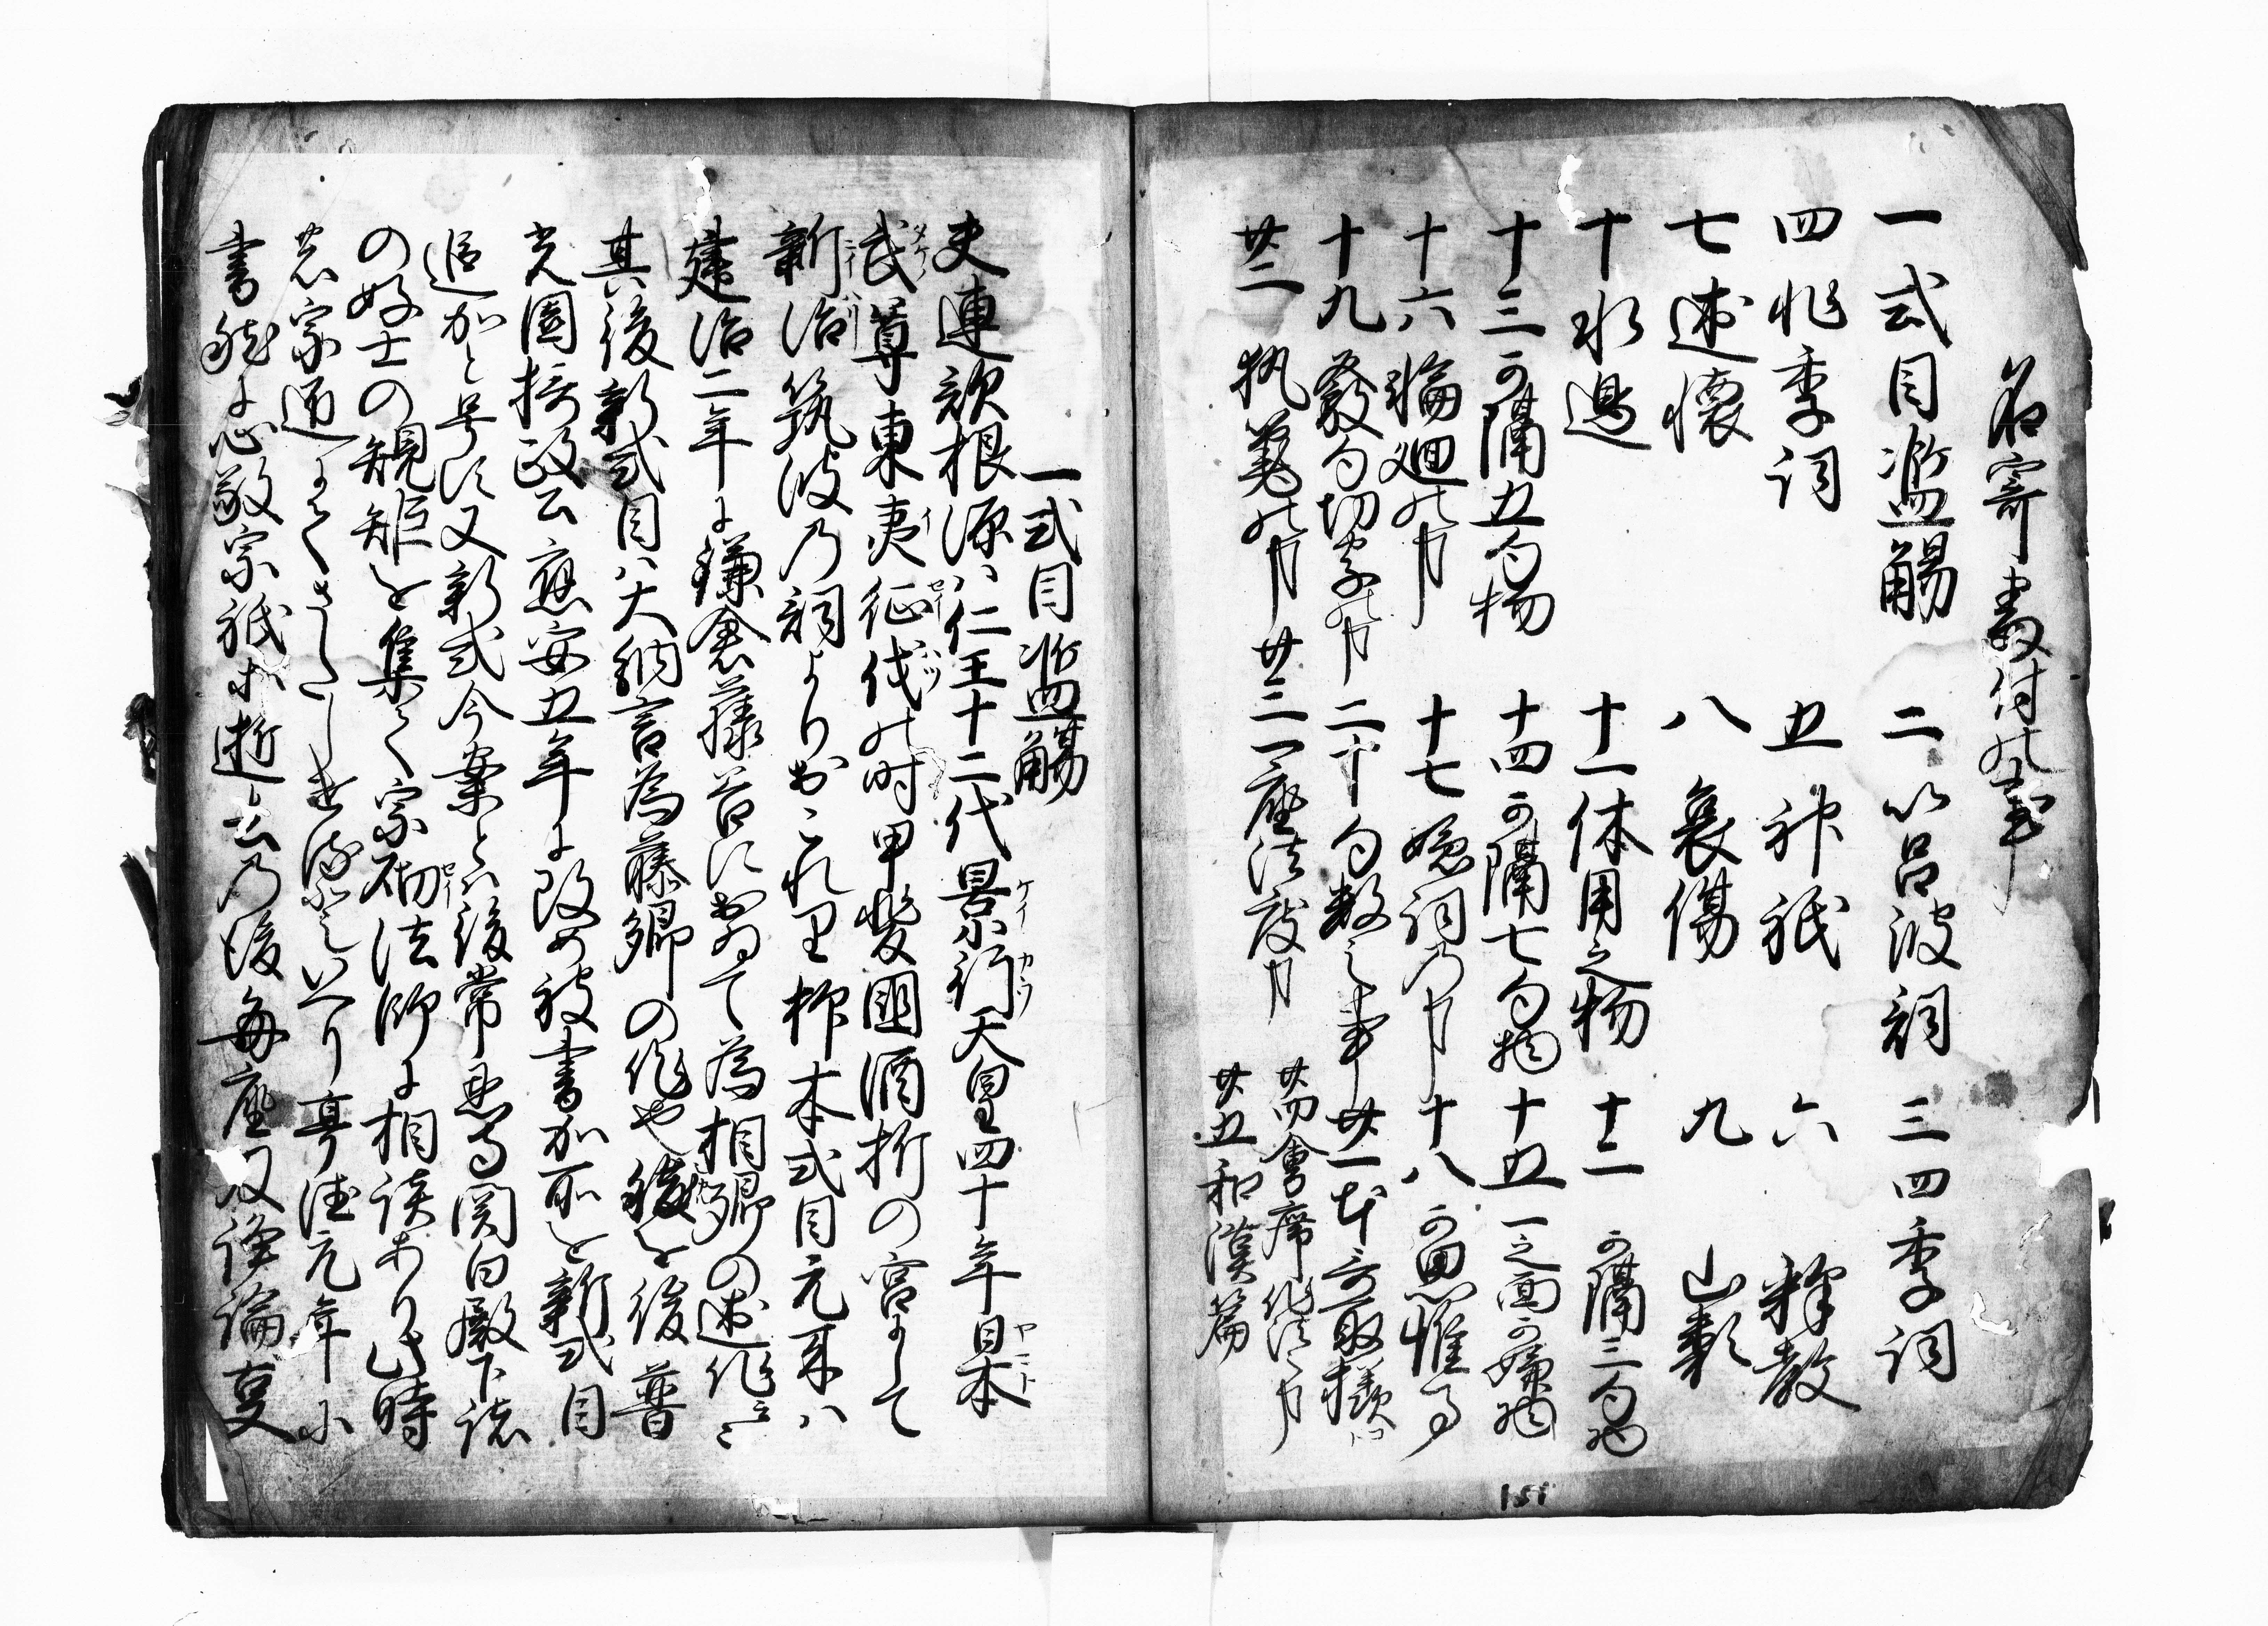 名寄書付之事
一式目濫觴 二以呂波詞 三四季詞
四非季詞 五神祇 六釋教
七述懐 八哀傷 九山類
十水邊 十一体用之物 十二可隔三句物
十三可隔五句物 十四可隔七句物 十五一之面可嫌物
十六輪廻之事 十七 詞乃事 十八可思惟事
十九發句切字之事 二十句数之事 廿一本哥取様
廿二執筆之事 廿三一座法度事 廿四會席作法事
廿五和漢篇
一式目濫觴
夫連歌根源ハ仁王十二代景行天皇四十年日本
武尊東夷征伐之時甲斐國酒折の宮にして
新治筑波乃詞よりおこれり抑本式目元来ハ
建治二年に鎌倉藤谷におゐて為相卿の述作云々
其後新式目ハ大納言為藤卿の作也後を後普
光園摂政公應安五年に改め被書加所を新式目
追加と号す又新式今案とハ後常恩寺関白殿下諸
の好士の規矩を集て宗砌法師に相談あり此時
宗通よく さし き いへり享徳元年に
書 に心敬宗祇 逝去乃後毎座及諍論更